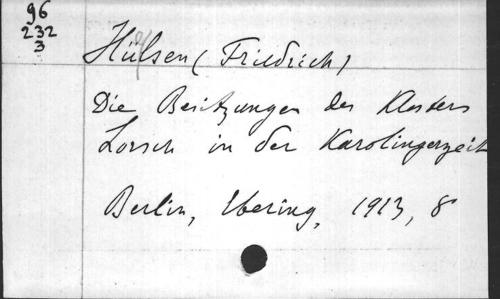 96
232
3
Hülsen (Friedrich)
Die Besitzungen des Klosters
Lorsch in der Karolingerzeit
Berlin, Ebering, 1913, 8°